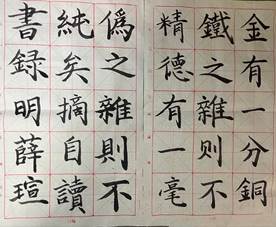 金有一分銅
鐵之雜则不
精德有一毫
偽之雜則不
純矣摘自讀
書録明薛瑄